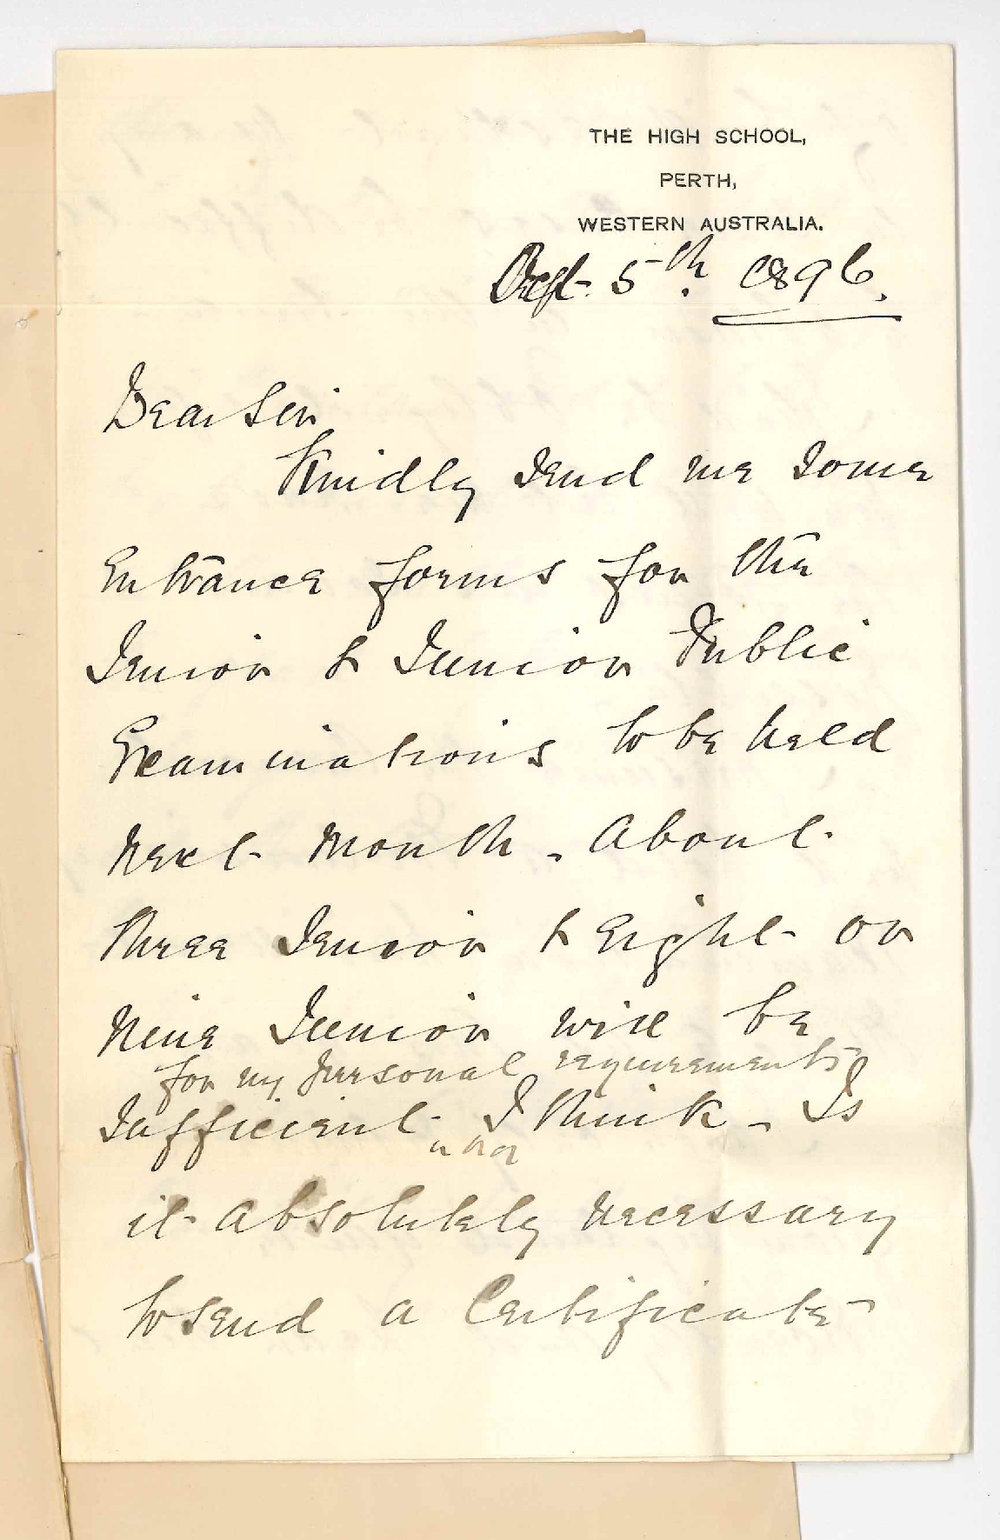 THE HIGH SCHOOL,
PERTH,
WESTERN AUSTRALIA.
Oct 5th. 1896.
Dear Sir,
Kindly send me some
Entrance forms for the
Senior & Junior Public
Examinations to be held
next month. About
three Senior & eight or
nine Junior will be
for my personal requirements
sufficient I think. Is
it absolutely necessary
to send a Certificate